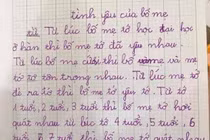 tình yêu của bố mẹ
Từ lúc bố mẹ tớ học đại học
ở hàn thì bố mẹ tớ đã yêu nhau.
Từ lúc bố mẹ cưới thì bố và mẹ
tớ tôn trọng nhau. Từ lúc mẹ tớ
đẻ ra tớ thì bố mẹ tớ yêu tớ. Tớ
1 tuổi, 2 tuổi, 3 tuổi thì bố mẹ tớ hơi
quát nhau từ lúc tớ 4 tuổi, 5 tuổi, 6
tuổi, 7 tuổi thì bố mẹ tớ quát nhau